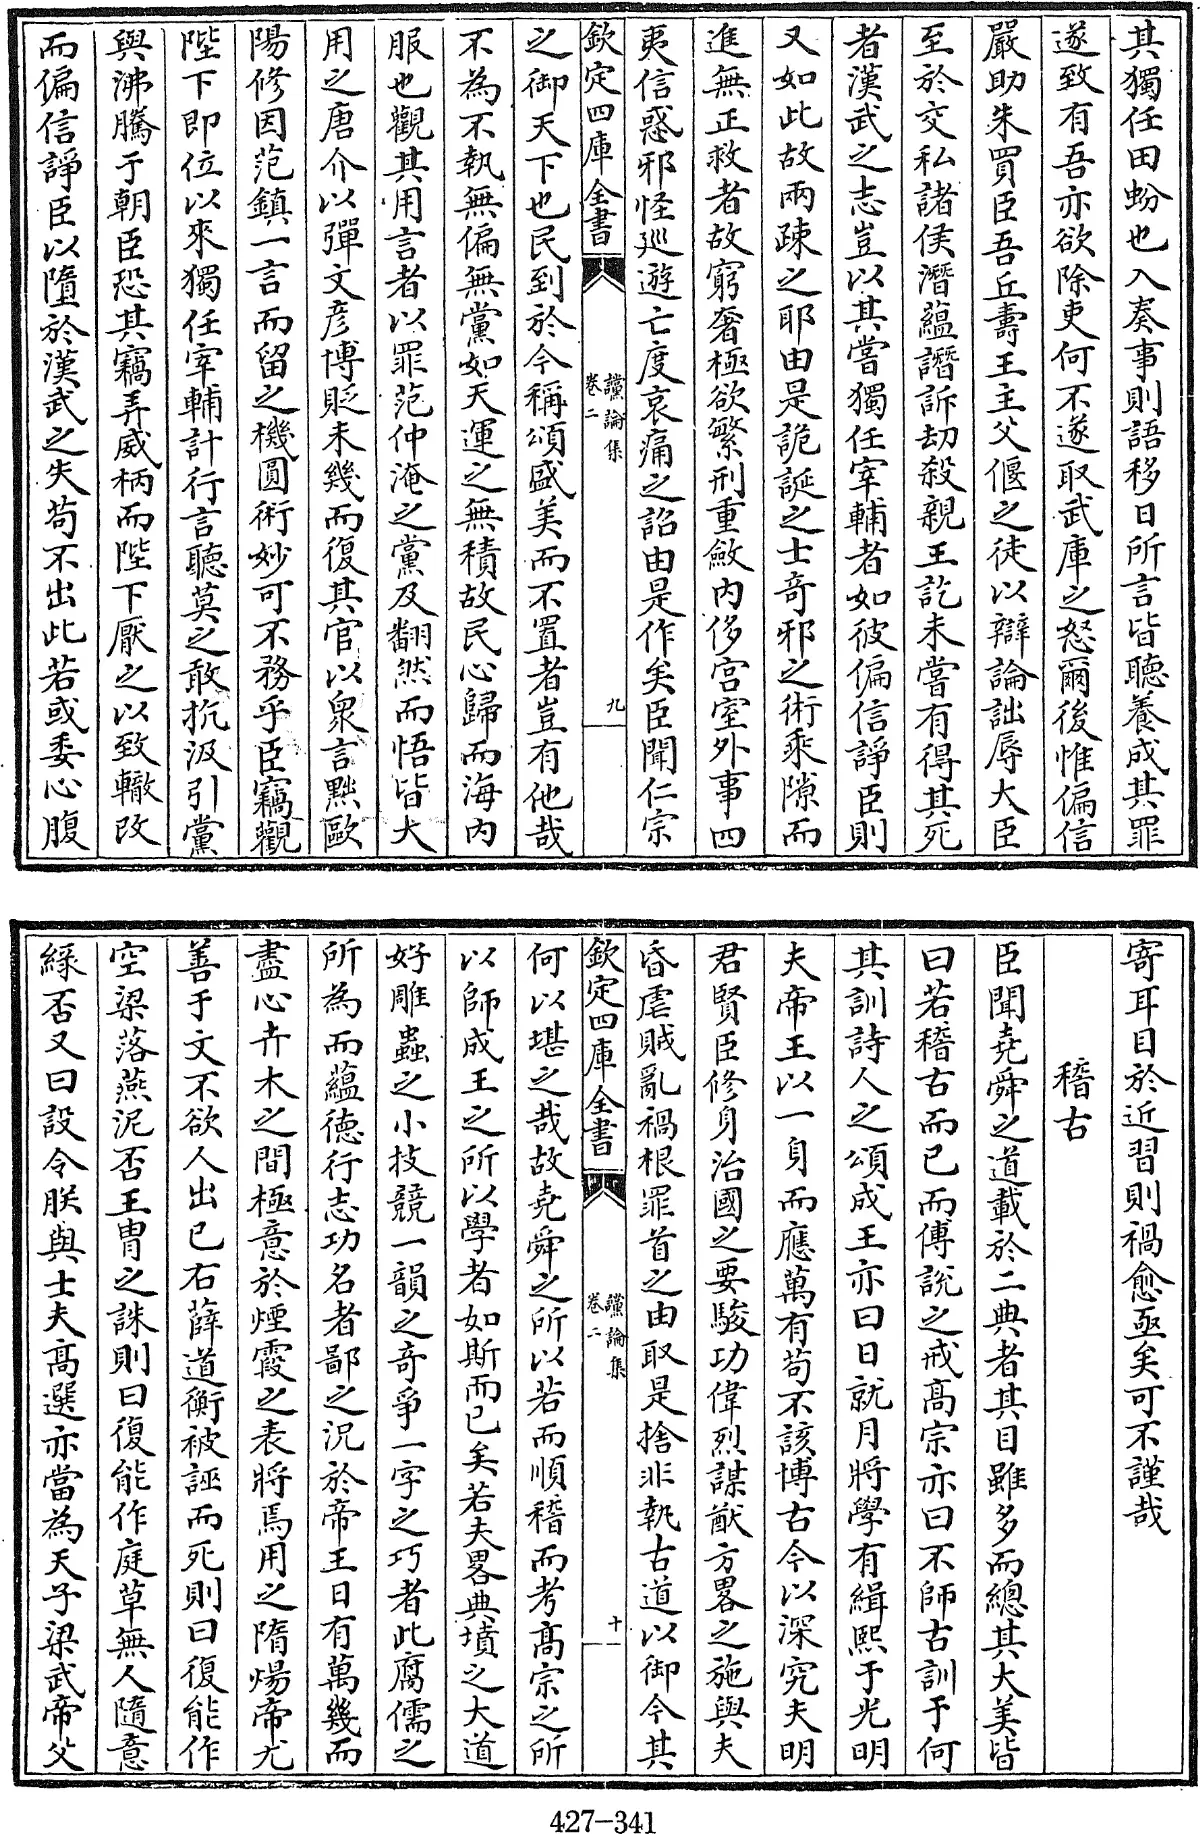 其獨任田蚡也入奏事則語移日所言皆聽養成其罪
遂致有吾亦欲除吏何不遂取武庫之怒爾後惟偏信
嚴助朱買臣吾丘壽王主父偃之徒以辯論詘辱大臣
至於交私諸侯潛藴譖訴劫殺親王訖未嘗有得其死
者漢武之志豈以其嘗獨任宰輔者如彼偏信諍臣則
又如此故兩踈之耶由是詭誕之士奇邪之術乘隙而
進無正救者故窮奢極欲繁刑重斂内侈宫室外事四
夷信惑邪怪廵遊亡度哀痛之詔由是作矣臣聞仁宗
欽定四庫全書
讜論集
卷二
九
之御天下也民到於今稱頌盛美而不置者豈有他哉
不為不執無偏無黨如天運之無積故民心歸而海内
服也觀其用言者以罪范仲淹之黨及翻然而悟皆大
用之唐介以彈文彦博貶未幾而復其官以衆言黜歐
陽修因范鎮一言而留之機圓術妙可不務乎臣竊觀
陛下即位以來獨任宰輔計行言聽莫之敢抗汲引黨
與沸騰于朝臣恐其竊弄威柄而陛下厭之以致轍改
而偏信諍臣以墮於漢武之失苟不出此若或委心腹
寄耳目於近習則禍愈亟矣可不謹哉
稽古
臣聞堯舜之道載於二典者其目雖多而總其大美皆
曰若稽古而已而傅說之戒高宗亦曰不師古訓于何
其訓詩人之頌成王亦曰日就月將學有緝熙于光明
夫帝王以一身而應萬有苟不該博古今以深究夫明
君賢臣修身治國之要駿功偉烈謀猷方畧之施與夫
昏虐賊亂禍根罪首之由取是捨非執古道以御今其
欽定四庫全書
讜論集
卷二
十
何以堪之哉故堯舜之所以若而順稽而考高宗之所
以師成王之所以學者如斯而已矣若夫畧典墳之大道
好雕蟲之小技競一韻之奇爭一字之巧者此腐儒之
所為而藴德行志功名者鄙之況於帝王日有萬幾而
盡心卉木之間極意於煙霞之表將焉用之隋煬帝尤
善于文不欲人出已右薛道衡被誣而死則曰復能作
空梁落燕泥否王胄之誅則曰復能作庭草無人隨意
綠否又曰設令朕與士夫高選亦當為天子梁武帝父
427-341